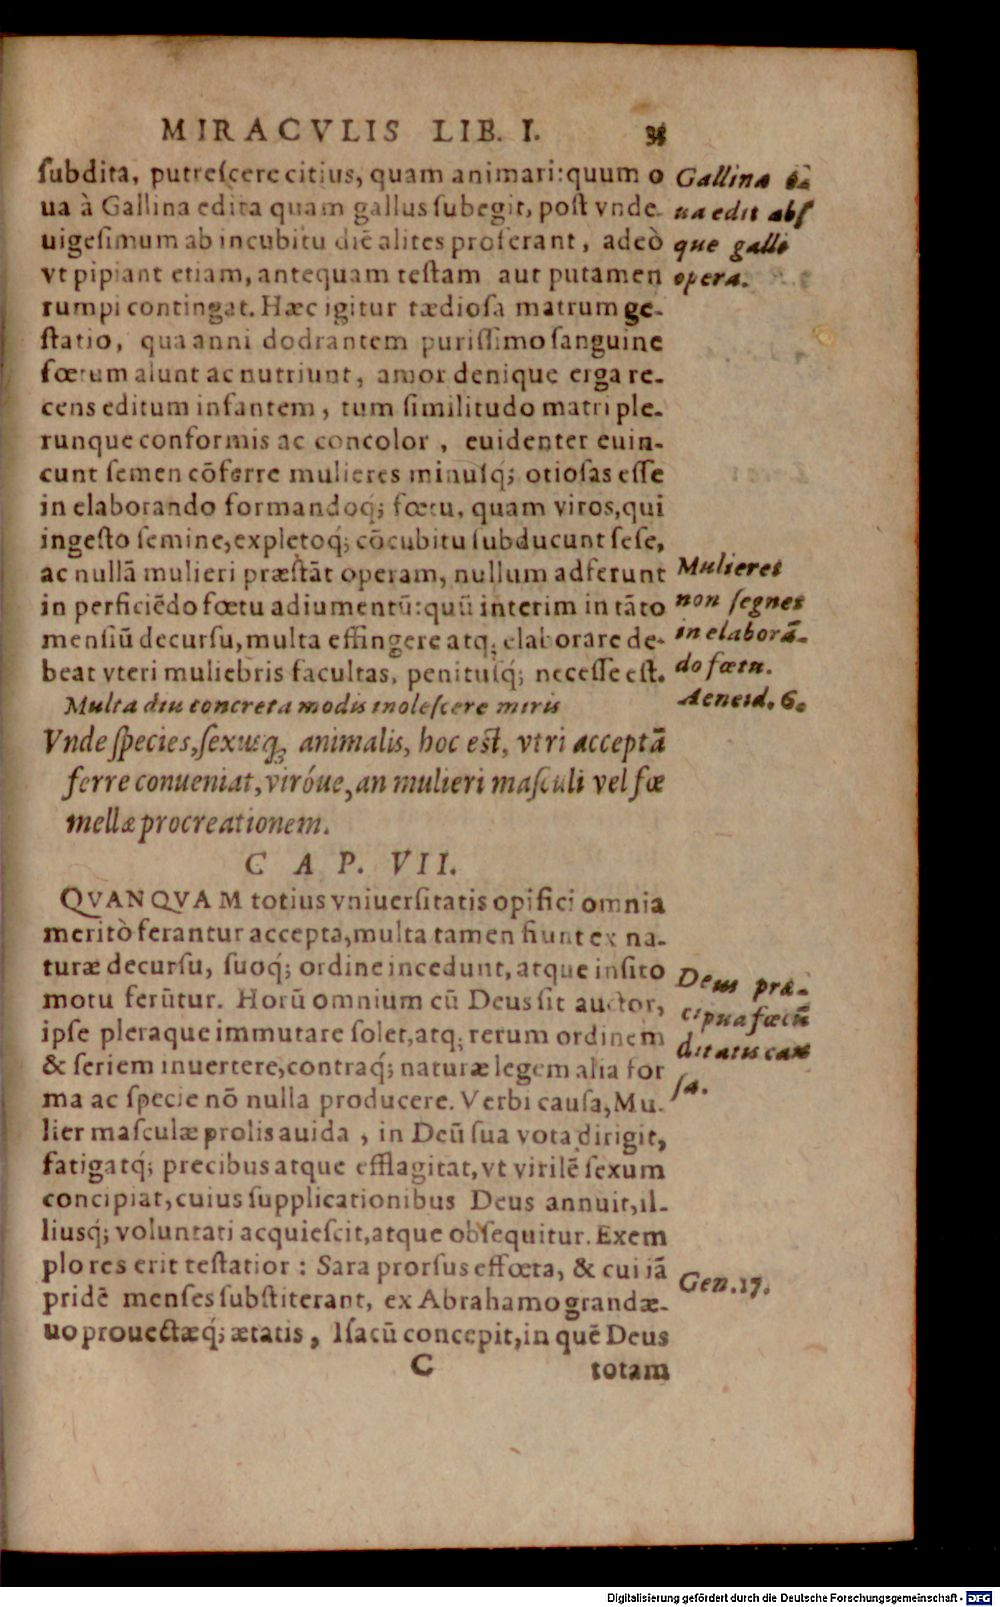 MIRACVLIS LIB. I.
ſubdita, putreſcere citius, quam animari: quum o
ua à Gallina edita quam gallus ſubegit, poſt vnde
uigeſimum ab incubitu diē alites proferant, adeò
vt pipiant etiam, antequam teſtam aut putamen
rumpi contingat. Hæc igitur tædioſa matrum ge-
ſtatio, qua anni dodrantem puriſſimo ſanguine
fœtum alunt ac nutriunt, amor denique erga re-
cens editum infantem, tum ſimilitudo matri ple-
runque conformis ac concolor, euidenter euin-
cunt ſemen cōferre mulieres minuſq́; otioſas eſſe
in elaborando formandoq́; fœtu, quam viros, qui
ingeſto ſemine, expletoq́; cōcubitu ſubducunt ſeſe,
ac nullā mulieri præſtāt operam, nullum adferunt
in perficiēdo fœtu adiumentū: quū interim in tāto
menſiū decurſu, multa effingere atq; elaborare de-
beat vteri muliebris facultas, penituſq́; neceſſe eſt.
Multa diu concreta modis inoleſcere miris
Vnde ſpecies, ſexusq́; animalis, hoc eſt, vtri acceptā
ferre conueniat, viróue, an mulieri maſculi vel fœ
mellæ procreationem.
CAP. VII.
QVANQVAM totius vniuerſitatis opifici omnia
meritò ferantur accepta, multa tamen fiunt ex na-
turæ decurſu, ſuoq́; ordine incedunt, atque inſito
motu ferūtur. Horū omnium cū Deus ſit auctor,
ipſe pleraque immutare ſolet, atq; rerum ordinem
& ſeriem inuertere, contraq́; naturæ legem alia for
ma ac ſpecie nō nulla producere. Verbi cauſa, Mu-
lier maſculæ prolis auida, in Deū ſua vota dirigit,
fatigatq́; precibus atque efflagitat, vt virilē ſexum
concipiat, cuius ſupplicationibus Deus annuit, il-
liusq́; voluntati acquieſcit, atque obſequitur. Exem
plo res erit teſtatior: Sara prorſus effœta, & cui iā
pridē menſes ſubſtiterant, ex Abrahamo grandæ-
uo prouectæq́; ætatis, Iſacū concepit, in quē Deus
C totam
Gallina
ua edit abſ
que galli
opera.
Mulieres
non ſegnes
in elaborā-
do fœtu.
Aeneid. 6.
Deus præ-
cipua fœcū
ditatis cau
ſa.
Gen. 17.
Digitalisierung gefördert durch die Deutsche Forschungsgemeinschaft - DFG